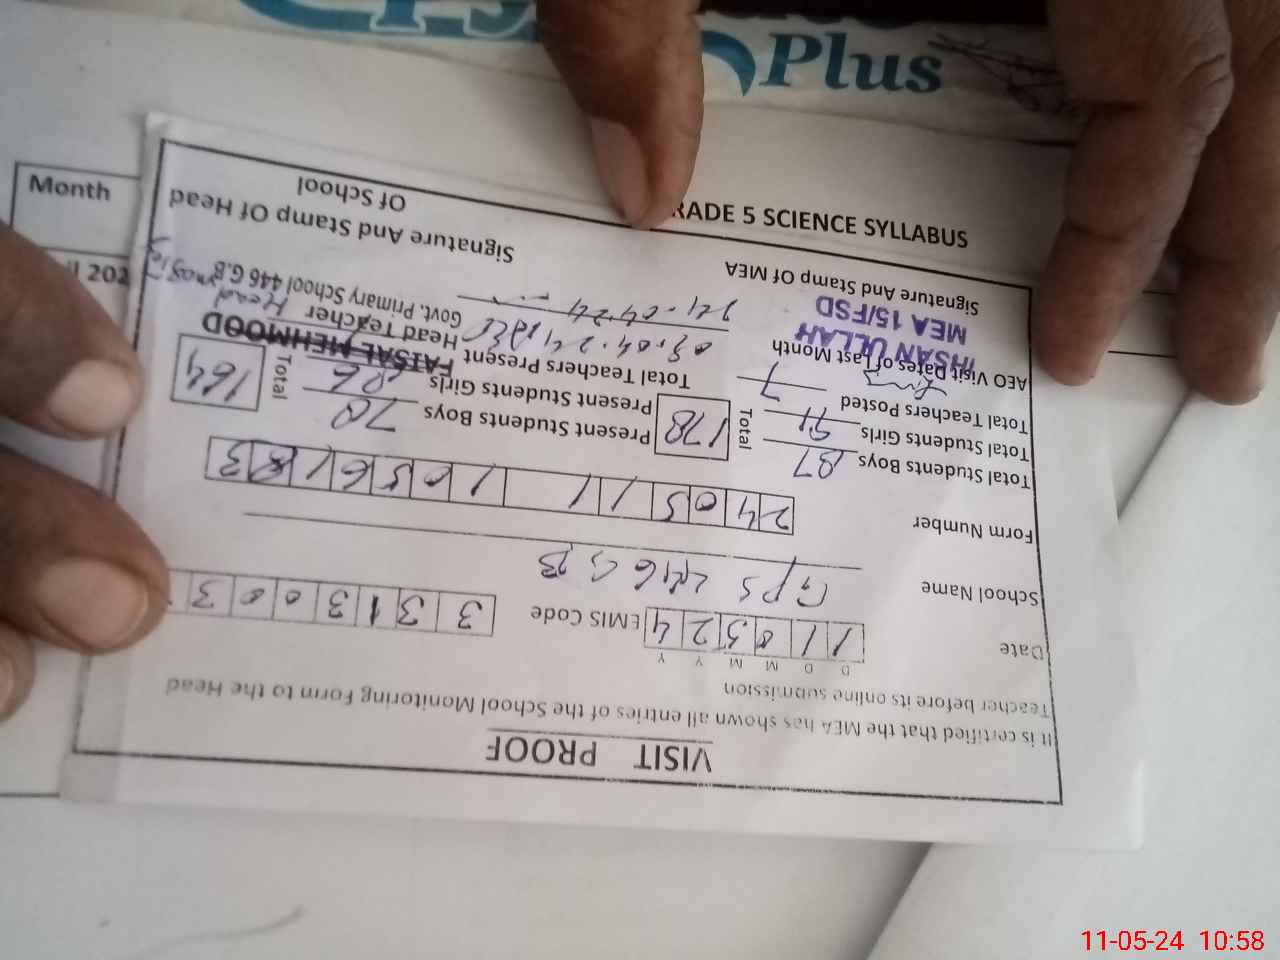 Plus
GRADE 5 SCIENCE SYLLABUS
Month
VISIT PROOF
It is certified that the MEA has shown all entries of the School Monitoring Form to the Head
Teacher before its online submission
D D M M Y Y
Date 1 1 0 5 2 4 EMIS Code 3 3 1 3 0 0 3
School Name GPS 446 G.B
Form Number 2 4 0 5 1 1 1 1 0 5 6 1 8 3
Total Students Boys 87 Total 178 Present Students Boys 78 Total 164
Total Students Girls 91 Present Students Girls 86
Total Teachers Posted 7 Total Teachers Present
AEO Visit Dates of Last Month 08.04.24,
24.04.24
IHSAN ULLAH
MEA 15/FSD
FAISAL MEHMOOD
Head Teacher Head
Govt. Primary School 446 G.B
Signature And Stamp Of MEA
Signature And Stamp Of Head
Of School
11-05-24 10:58